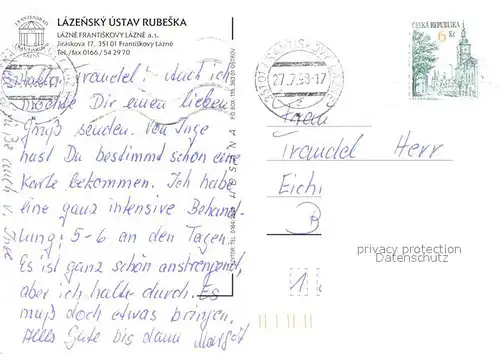 FRANZENSBAD
LÁZEŇSKÝ ÚSTAV RUBEŠKA
LÁZNĚ FRANTIŠKOVY LÁZNĚ a.s.
Jiráskova 17, 351 01 Františkovy Lázně
Tel./fax 0166 / 54 29 70
Hallo, Traudel! Auch ich
möchte Dir einen lieben
Gruß senden. Von Inge
hast Du bestimmt schon eine
Karte bekommen. Ich habe
eine ganz intensive Behand-
lung; 5-6 an den Tagen.
Es ist ganz schön anstrengend,
aber ich halte durch. Es
muß doch etwas bringen.
Alles Gute bis dann Margot
auch v. Inge
27.7.98-17
27.7.98-17
z
ČESKÁ REPUBLIKA
6 Kč
Frau
Traudel Herr
Eichl
B
privacy protection
Datenschutz
1